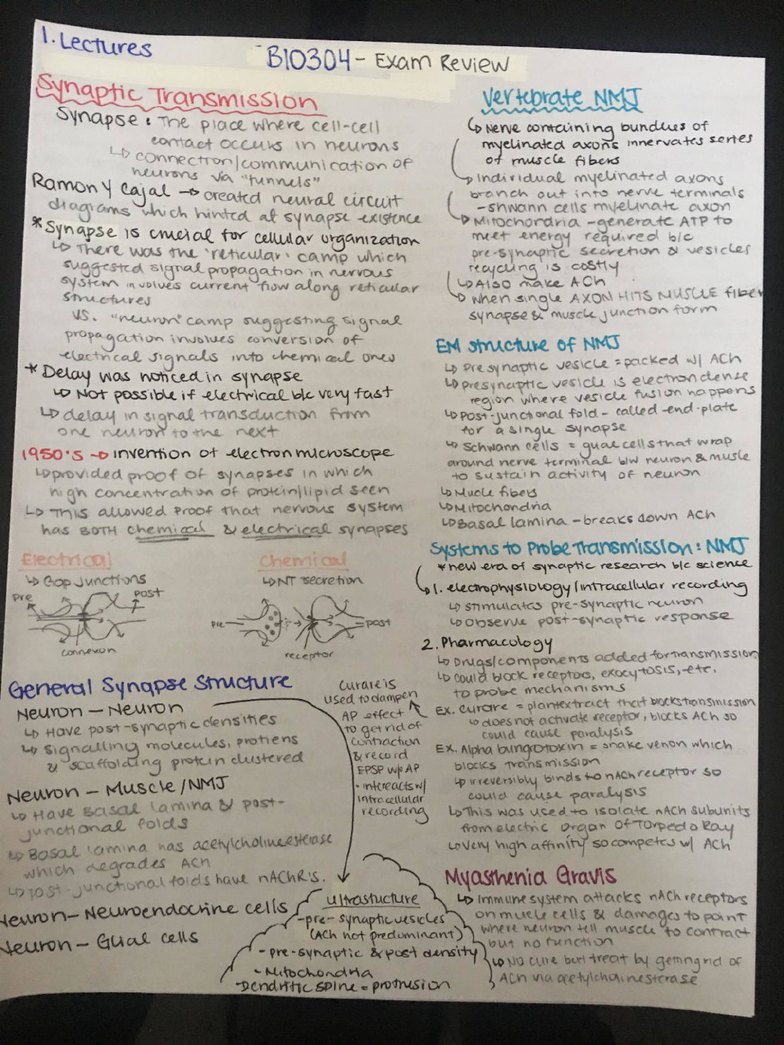 1. Lectures
BIO304 - Exam Review
Synaptic Transmission
Synapse: The place where cell-cell
contact occurs in neurons
↳ connection/communication of
neurons via "tunnels"
Ramon y Cajal → created neural circuit
diagrams which hinted at synapse existence
*Synapse is crucial for cellular organization
↳ There was the 'reticular' camp which
suggested signal propagation in nervous
system involves current flow along reticular
structures
VS. "neuron" camp suggesting signal
propagation involves conversion of
electrical signals into chemical ones
* Delay was noticed in synapse
↳ Not possible if electrical b/c very fast
↳ delay in signal transduction from
one neuron to the next
1950's → invention of electron microscope
↳ provided proof of synapses in which
high concentration of protein/lipid seen
↳ This allowed proof that nervous system
has BOTH chemical & electrical synapses
Electrical
↳ Gap junctions
pre
post
connexon
Chemical
↳ NT secretion
pre
post
receptor
General Synapse Structure
Neuron - Neuron
↳ Have post-synaptic densities
↳ signalling molecules, protiens
& scaffolding protein clustered
Neuron - Muscle/NMJ
↳ Have Basal lamina & post-
junctional folds
↳ Basal lamina has acetylcholinesterase
which degrades ACh
↳ post-junctional folds have nAChR's.
Neuron - Neuroendocrine cells
Neuron - Glial cells
curare is
used to dampen
AP effect
to get rid of
contraction
& record
EPSP w/o AP
- interacts w/
intracellular
recording
ultrastucture
- pre-synaptic vesicles
(ACh not predominant)
- pre-synaptic & post density
- Mitochondria
- Dendritic spine = protrusion
Vertebrate NMJ
↳ Nerve containing bundles of
myelinated axons innervates series
of muscle fibers
↳ Individual myelinated axons
branch out into nerve terminals
- shwann cells myelinate axon
↳ Mitochondria - generate ATP to
meet energy required b/c
pre-synaptic secretion & vesicles
recycling is costly
↳ Also make ACh
↳ When single AXON HITS MUSCLE fiber
synapse & muscle junction form
EM structure of NMJ
↳ Presynaptic vesicle = packed w/ ACh
↳ presynaptic vesicle is electron dense
region where vesicle fusion happens
↳ Post-junctional fold - called end-plate
for a single synapse
↳ Schwann cells = glial cells that wrap
around nerve terminal b/w neuron & musle
to sustain activity of neuron
↳ Mucle fibers
↳ Mitochondria
↳ Basal lamina - breaks down ACh
Systems to Probe Transmission: NMJ
* new era of synaptic research b/c science
↳ 1. electrophysiology/intracellular recording
↳ stimulates pre-synaptic neuron
↳ Observe post-synaptic response
2. Pharmacology
↳ Drugs/components added for transmission
↳ could block receptor, exocytosis, etc.
to probe mechanisms
Ex. curare = plant extract that blocks transmission
↳ does not activate receptor, blocks ACh so
could cause paralysis
Ex. Alpha bungotoxin = snake venom which
blocks transmission
↳ irreversibly binds to nACh receptor so
could cause paralysis
↳ This was used to isolate nACh subunits
from electric organ Of Torpedo Ray
↳ very high affinity so competes w/ ACh
Myasthenia Gravis
↳ Immune system attacks nACh receptors
on mucle cells & damages to point
where neuron tell muscle to contract
but no function
↳ NO cure but treat by getting rid of
ACh via acetylcholinesterase